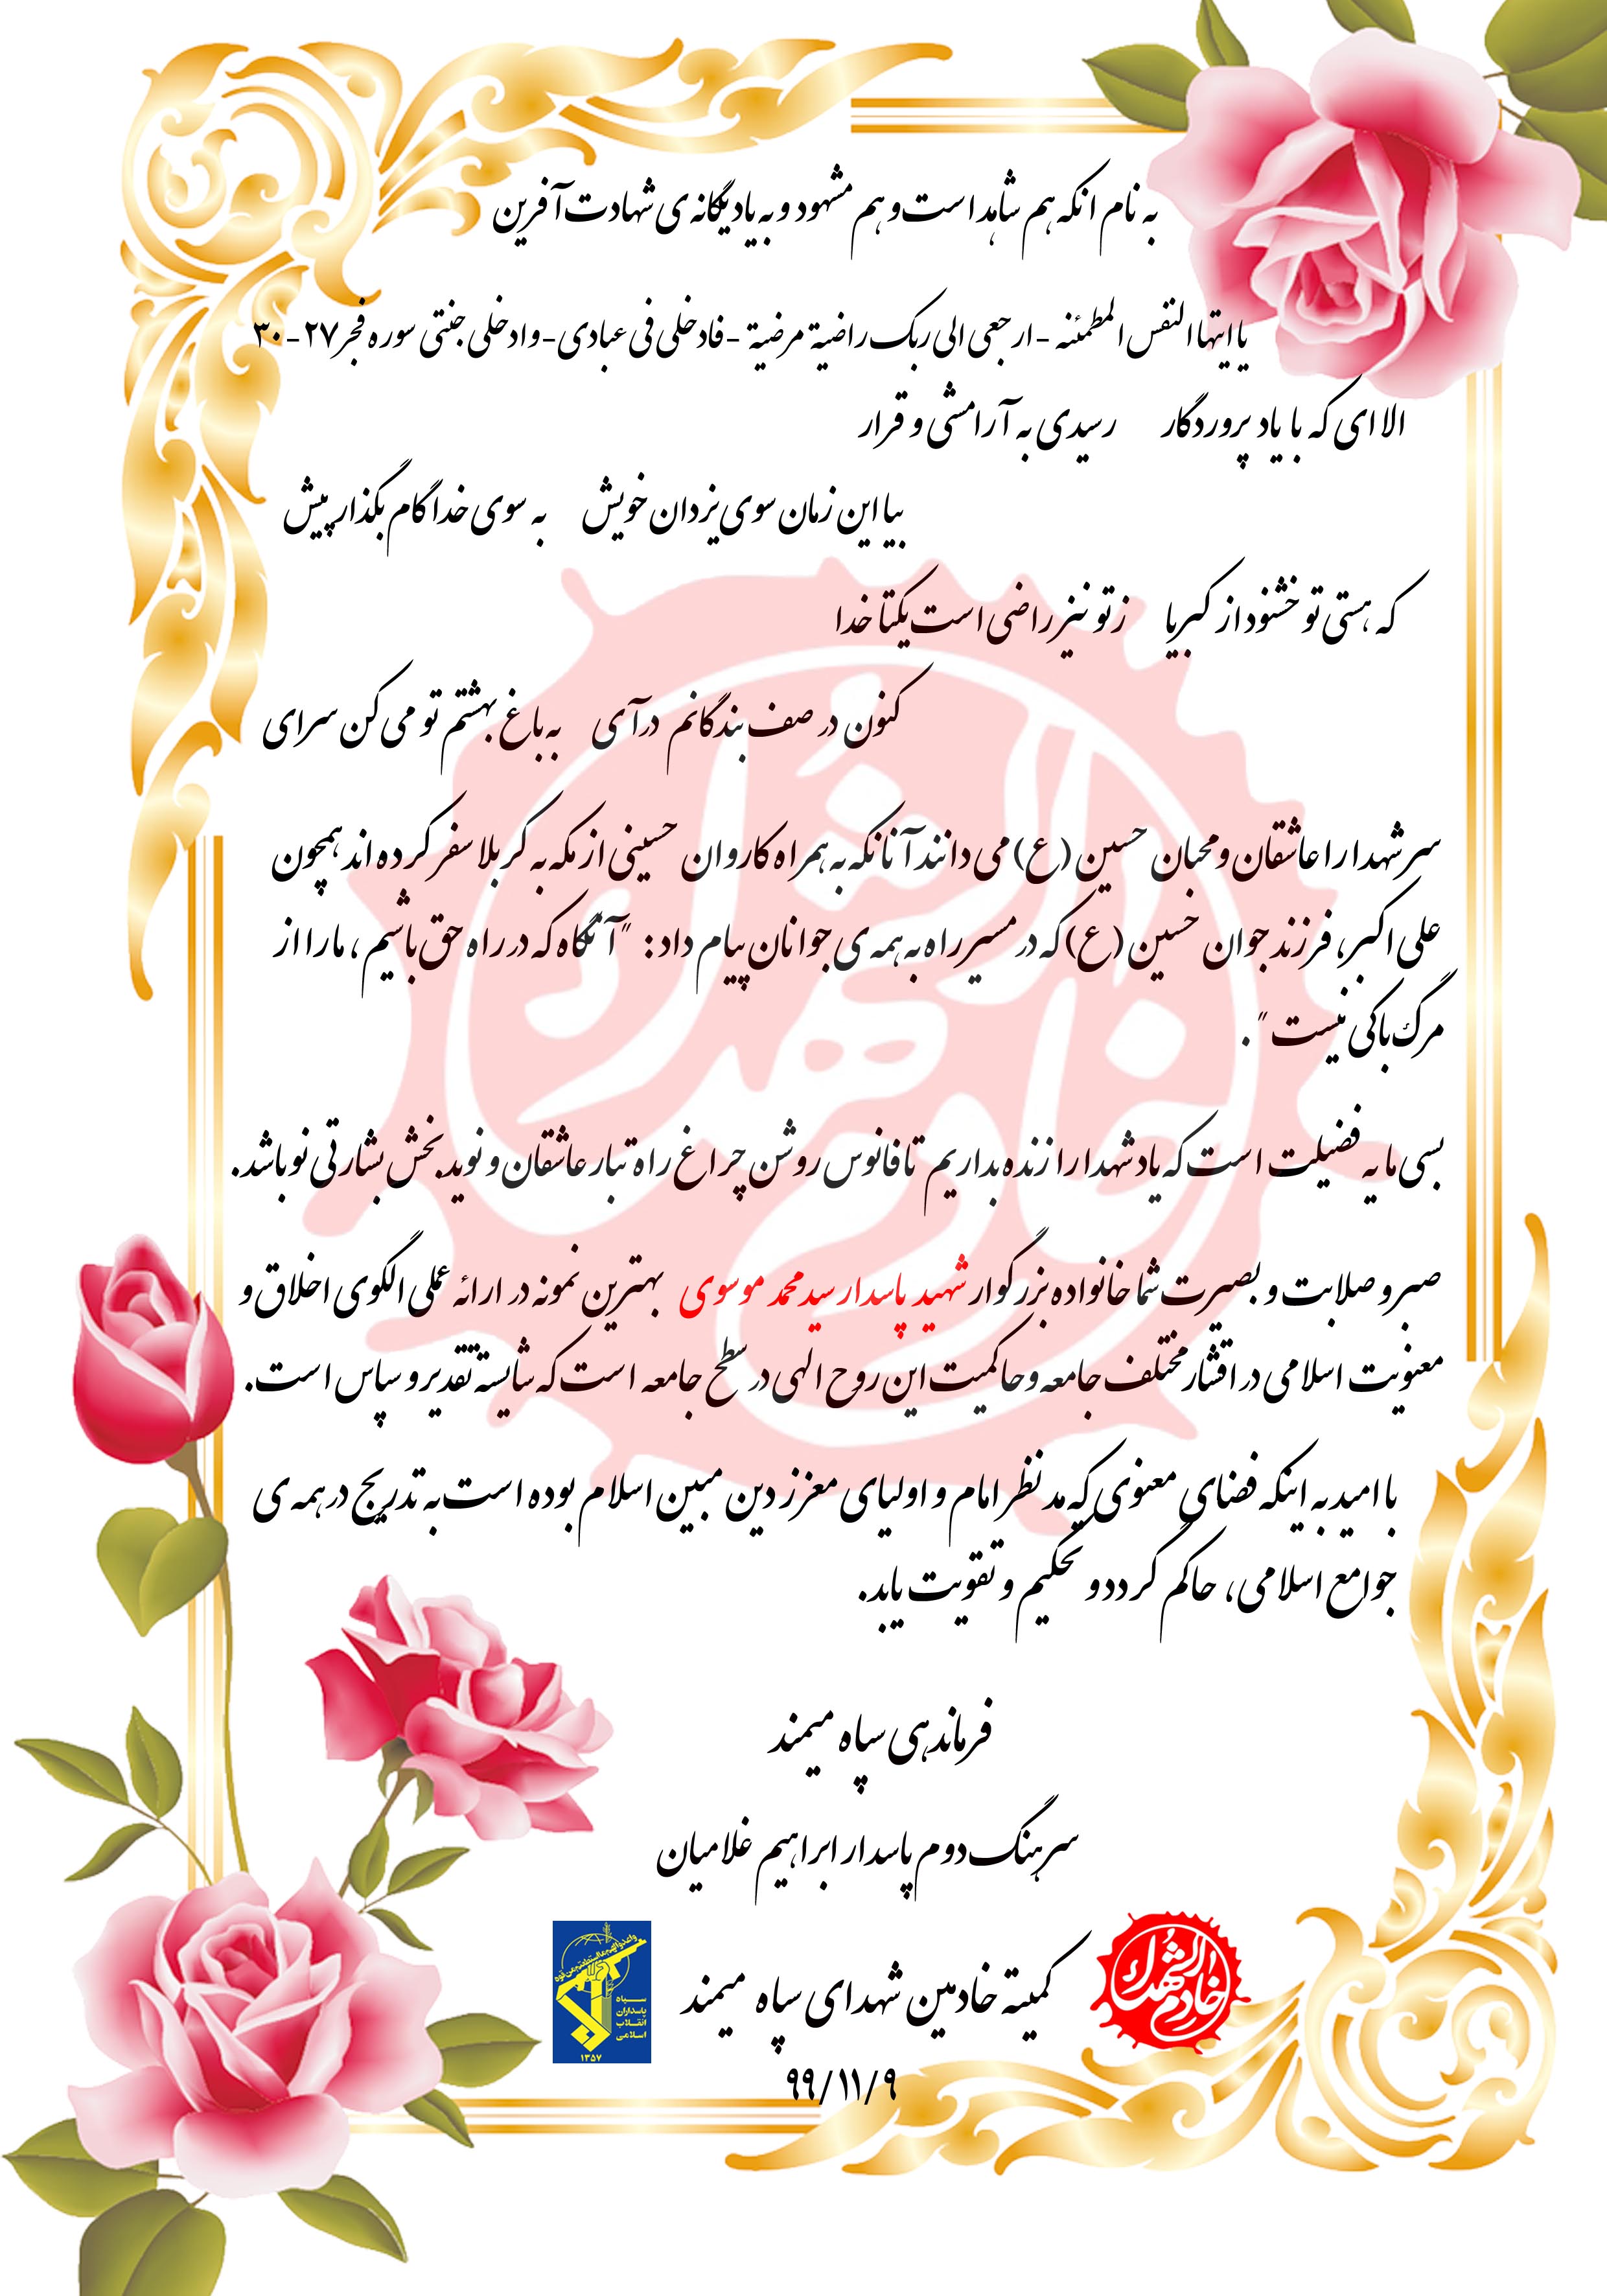 به نام انکه هم شاهد است و هم مشهود و به یاد یگانه ی شهادت آفرین
یا ایتها النفس المطمئنه - ارجعی الی ربک راضیة مرضیة - فادخلی فی عبادی - وادخلی جنتی سوره فجر ۲۷-۳۰
الا ای که با یاد پروردگار رسیدی به آرامشی و قرار
بیا این زمان سوی یزدان خویش به سوی خدا گام بگذار پیش
که هستی تو خشنود از کبریا ز تو نیز راضی است یکتا خدا
کنون در صف بندگانم درآی به باغ بهشتم تو می کن سرای
سر شهدا را عاشقان و محبان حسین (ع) می دانند آنانکه به همراه کاروان حسینی از مکه به کربلا سفر کرده اند همچون
علی اکبر، فرزند جوان حسین (ع) که در مسیر راه به همه ی جوانان پیام داد: "آنگاه که در راه حق باشیم، ما را از
مرگ باکی نیست".
بسی مایه فضیلت است که یاد شهدا را زنده بداریم تا فانوس روشن چراغ راه تبار عاشقان و نوید بخش بشارتی نو باشد.
صبر و صلابت و بصیرت شما خانواده بزرگوار شهید پاسدار سید محمد موسوی بهترین نمونه در ارائه عملی الگوی اخلاق و
معنویت اسلامی در اقشار مختلف جامعه و حاکمیت این روح الهی در سطح جامعه است که شایسته تقدیر و سپاس است.
با امید به اینکه فضای معنوی که مد نظر امام و اولیای معزز دین مبین اسلام بوده است به تدریج در همه ی
جوامع اسلامی، حاکم گردد و تحکیم و تقویت یابد.
فرماندهی سپاه میمند
سرهنگ دوم پاسدار ابراهیم غلامیان
کمیته خادمین شهدای سپاه میمند
خادم الشهداء
واعدوا لهم ما استطعتم من قوة
سپاه
پاسداران
انقلاب
اسلامی
۱۳۵۷
۹۹/۱۱/۹